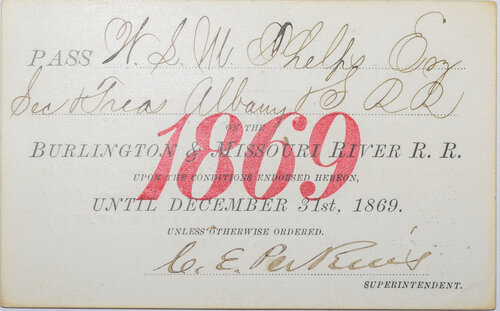 PASS W. S. M. Phelps Esq
Sec & Treas Albany & S R R
ON THE
BURLINGTON & MISSOURI RIVER R. R.
1869
UPON THE CONDITIONS ENDORSED HEREON,
UNTIL DECEMBER 31st, 1869.
UNLESS OTHERWISE ORDERED.
C. E. Perkins
SUPERINTENDENT.